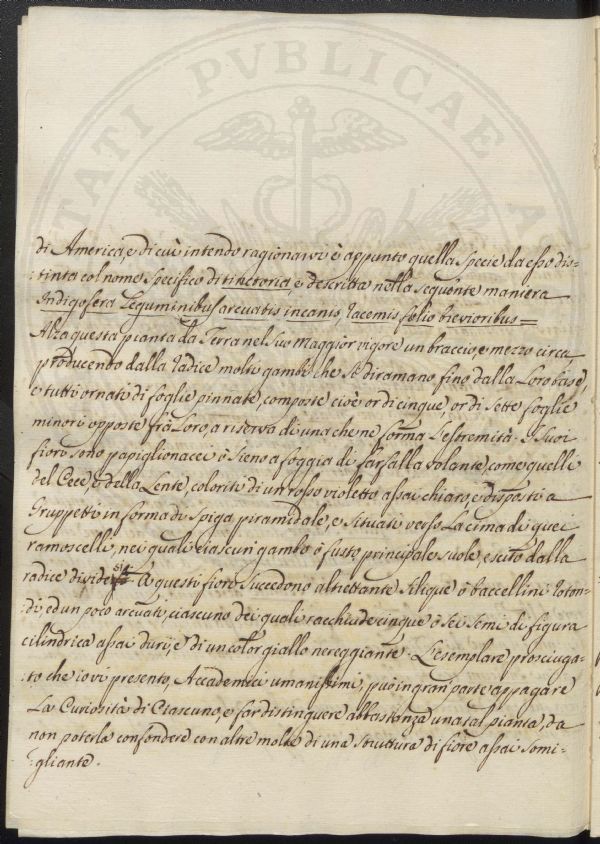 TATI PVBLICAE
di America, e di cui intendo ragionarvi è appunto quella Specie da esso dis-
:tinta col nome Specifico di tinctoria, e descritta nella seguente maniera
Indigofera Leguminibus arcuatis incanis, racemis folio brevioribus=
Alza questa pianta da Terra nel Suo Maggior vigore un braccio, e mezzo circa
producendo dalla radice molti gambi che Si diramano fino dalla Loro base,
e tutti ornati di foglie pinnate, composte cioè or di cinque, or di Sette foglie
minori opposte frà Loro, a riserva di una che ne forma L'estremità. I Suoi
fiori sono papiglionacei ò Sieno a foggia di farfalla volante, come quelli
del Cece, e della Lente, coloriti di un rosso violetto assai chiaro, e disposti a
Gruppetti in forma di Spiga piramidale, e Situati verso La cima di quei
ramoscelli, nei quali ciascun gambo ò fusto principale suole, escito dalla
radice dividersi. A questi fiori Succedono altrettante Silique ò baccellini roton-
di, ed un poco arcuati, ciascuno dei quali racchiude cinque ò Sei Semi di figura
cilindrica assai duri, e di un color giallo nereggiante. L'esemplare prosciuga=
:to che io vi presento, Accademici umanissimi, può in gran parte appagare
La Curiosità di Ciascuno, e far distinguere abbastanza una tal pianta, da
non poterla confondere con altre molte di una struttura di fiore assai Somi-
:gliante.